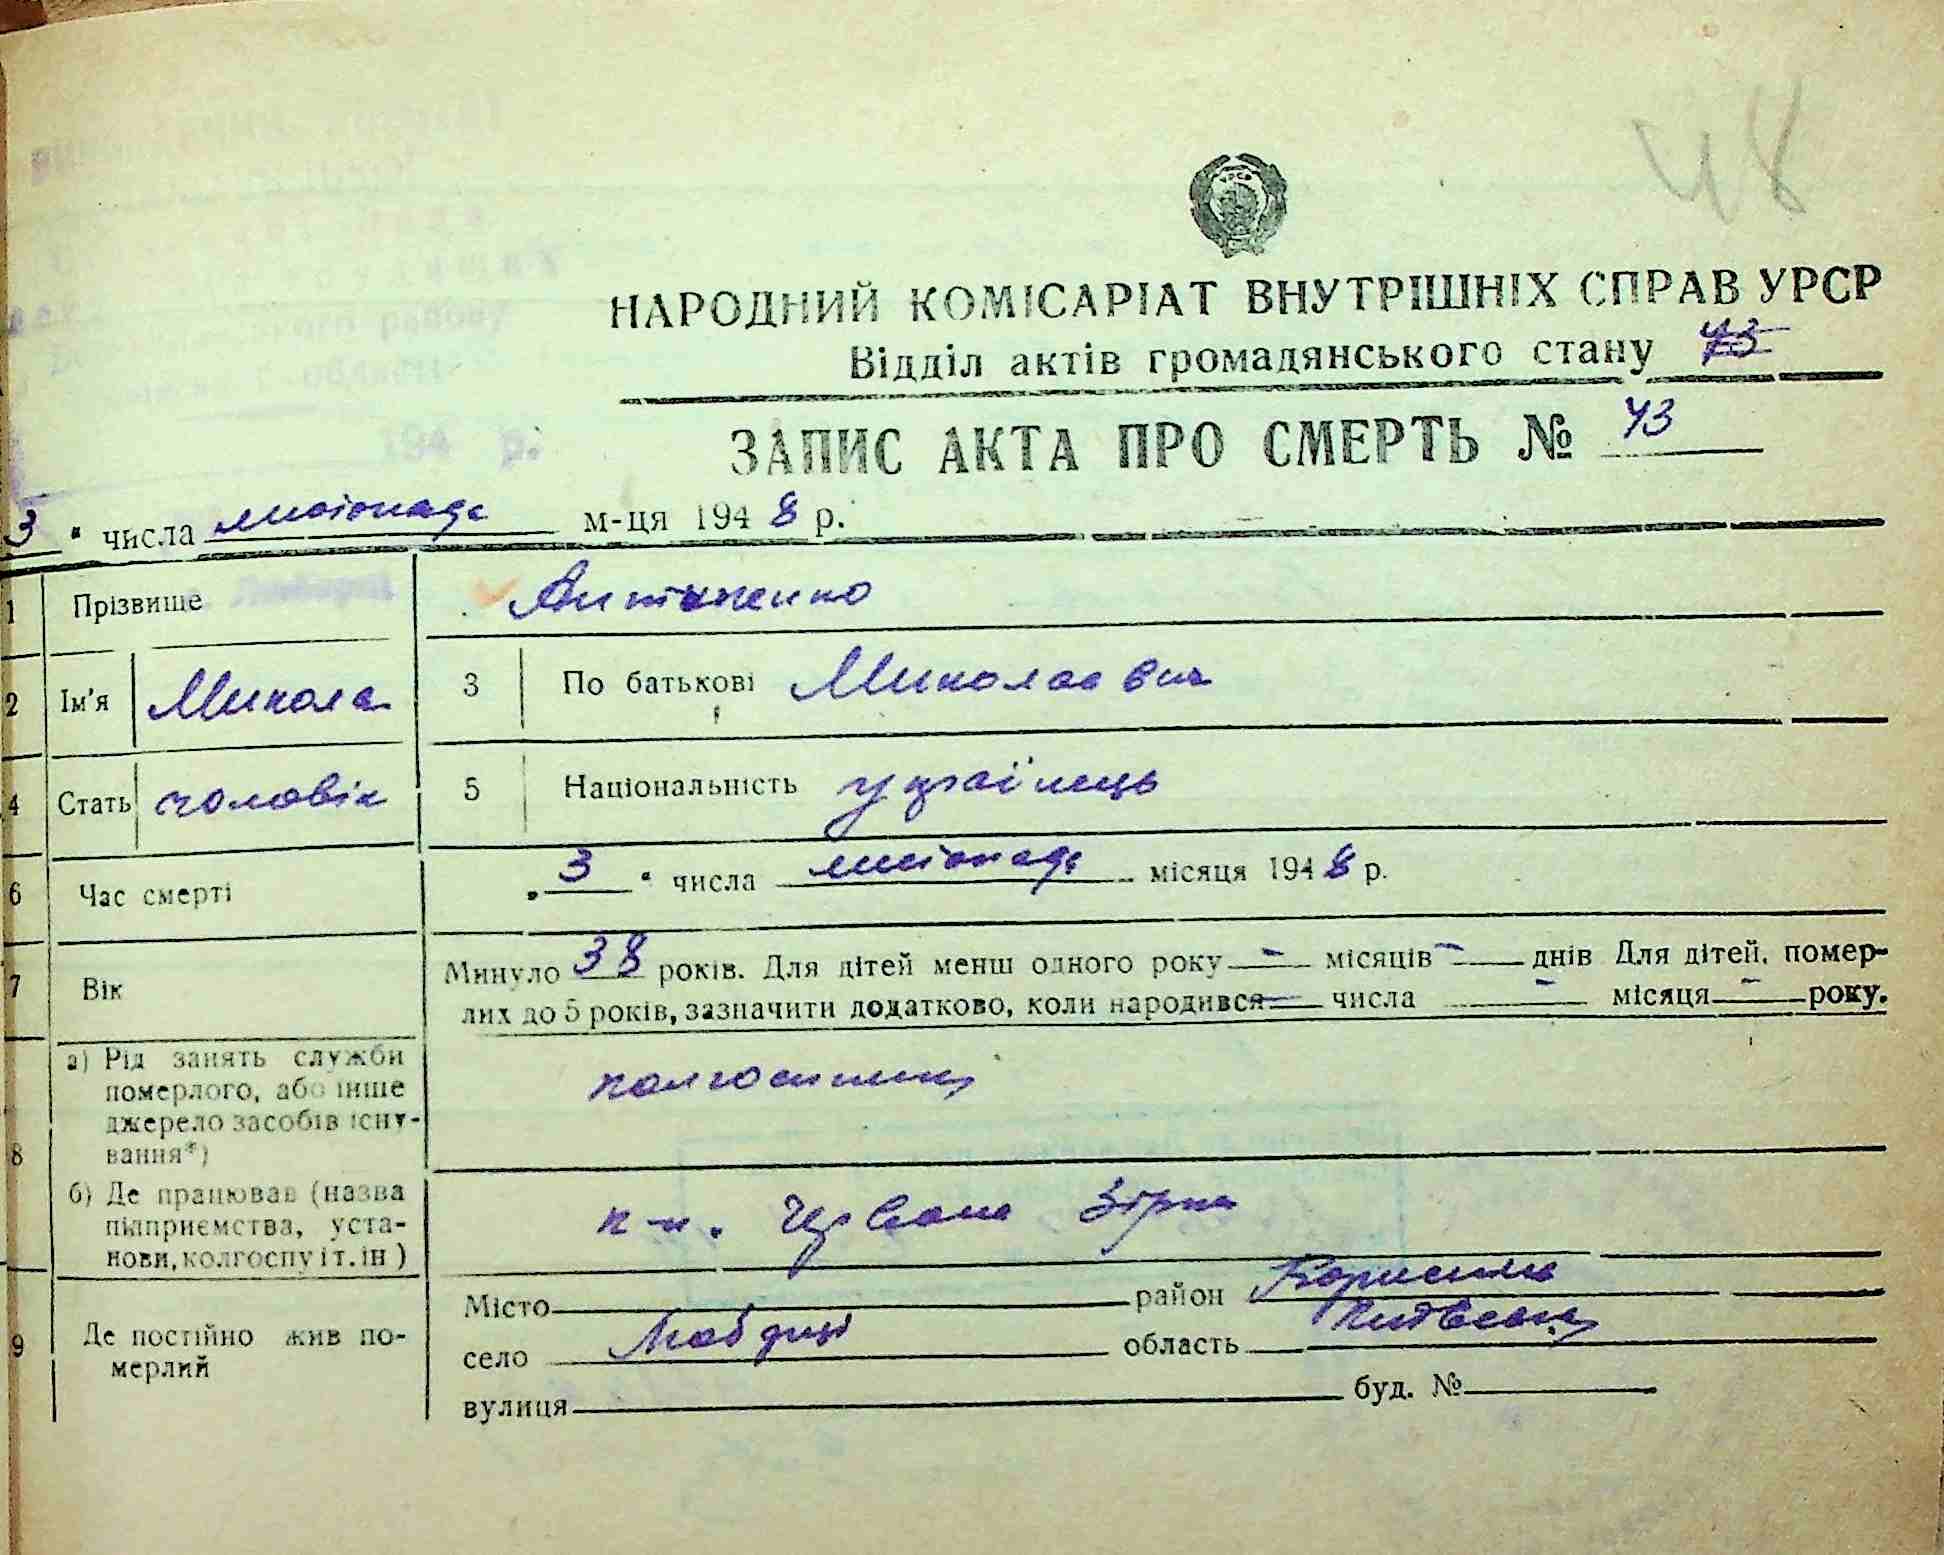 48
НАРОДНИЙ КОМІСАРІАТ ВНУТРІШНІХ СПРАВ УРСР
Відділ актів громадянського стану 43
ЗАПИС АКТА ПРО СМЕРТЬ № 43
3 " числа листопада м-ця 1948 р.
1 Прізвище Антоненко
2 Ім'я Микола 3 По батькові Миколаович
4 Стать чоловік 5 Національність українець
6 Час смерті „3" числа листопада місяця 1948 р.
7 Вік Минуло 38 років. Для дітей менш одного року - місяців - днів Для дітей, помер-
лих до 5 років, зазначити додатково, коли народився - числа - місяця - року.
8 а) Рід занять служби
померлого, або інше
джерело засобів існу-
вання*)
колгоспник
б) Де працював (назва
підприємства, уста-
нови, колгоспу і т. ін)
к-п. Червона Зірка
9 Де постійно жив по-
мерлий
Місто район Бориспіль
село область Київська
вулиця буд. №